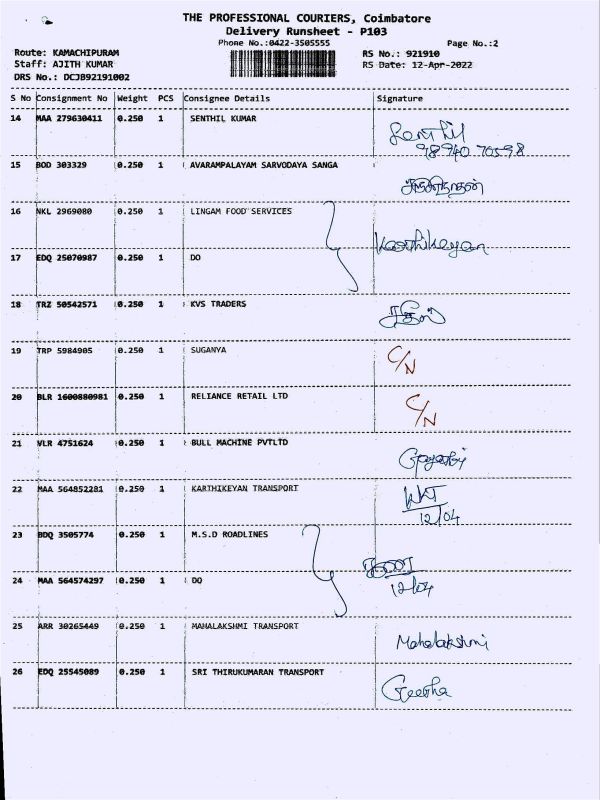 THE PROFESSIONAL COURIERS, Coimbatore
Delivery Runsheet - P103
Phone No.:0422-3505555
Page No.:2
Route: KAMACHIPURAM
RS No.: 921910
Staff: AJITH KUMAR
RS Date: 12-Apr-2022
DRS No.: DCJB92191002
S No Consignment No Weight PCS Consignee Details Signature
14 MAA 279630411 0.250 1 SENTHIL KUMAR Senthil
98940 70598
15 BOD 303329 0.250 1 AVARAMPALAYAM SARVODAYA SANGA
16 NKL 2969080 0.250 1 LINGAM FOOD SERVICES
Karthikeyan
17 EDQ 25070987 0.250 1 DO
18 TRZ 50542571 0.250 1 KVS TRADERS
19 TRP 5984905 0.250 1 SUGANYA C/N
20 BLR 1600880981 0.250 1 RELIANCE RETAIL LTD C/N
21 VLR 4751624 0.250 1 BULL MACHINE PVTLTD
22 MAA 564852281 0.250 1 KARTHIKEYAN TRANSPORT WKT
12/04
23 BDQ 3505774 0.250 1 M.S.D ROADLINES
24 MAA 564574297 0.250 1 DO 12/04
25 ARR 30265449 0.250 1 MAHALAKSHMI TRANSPORT Mahalakshmi
26 EDQ 25545089 0.250 1 SRI THIRUKUMARAN TRANSPORT Geetha